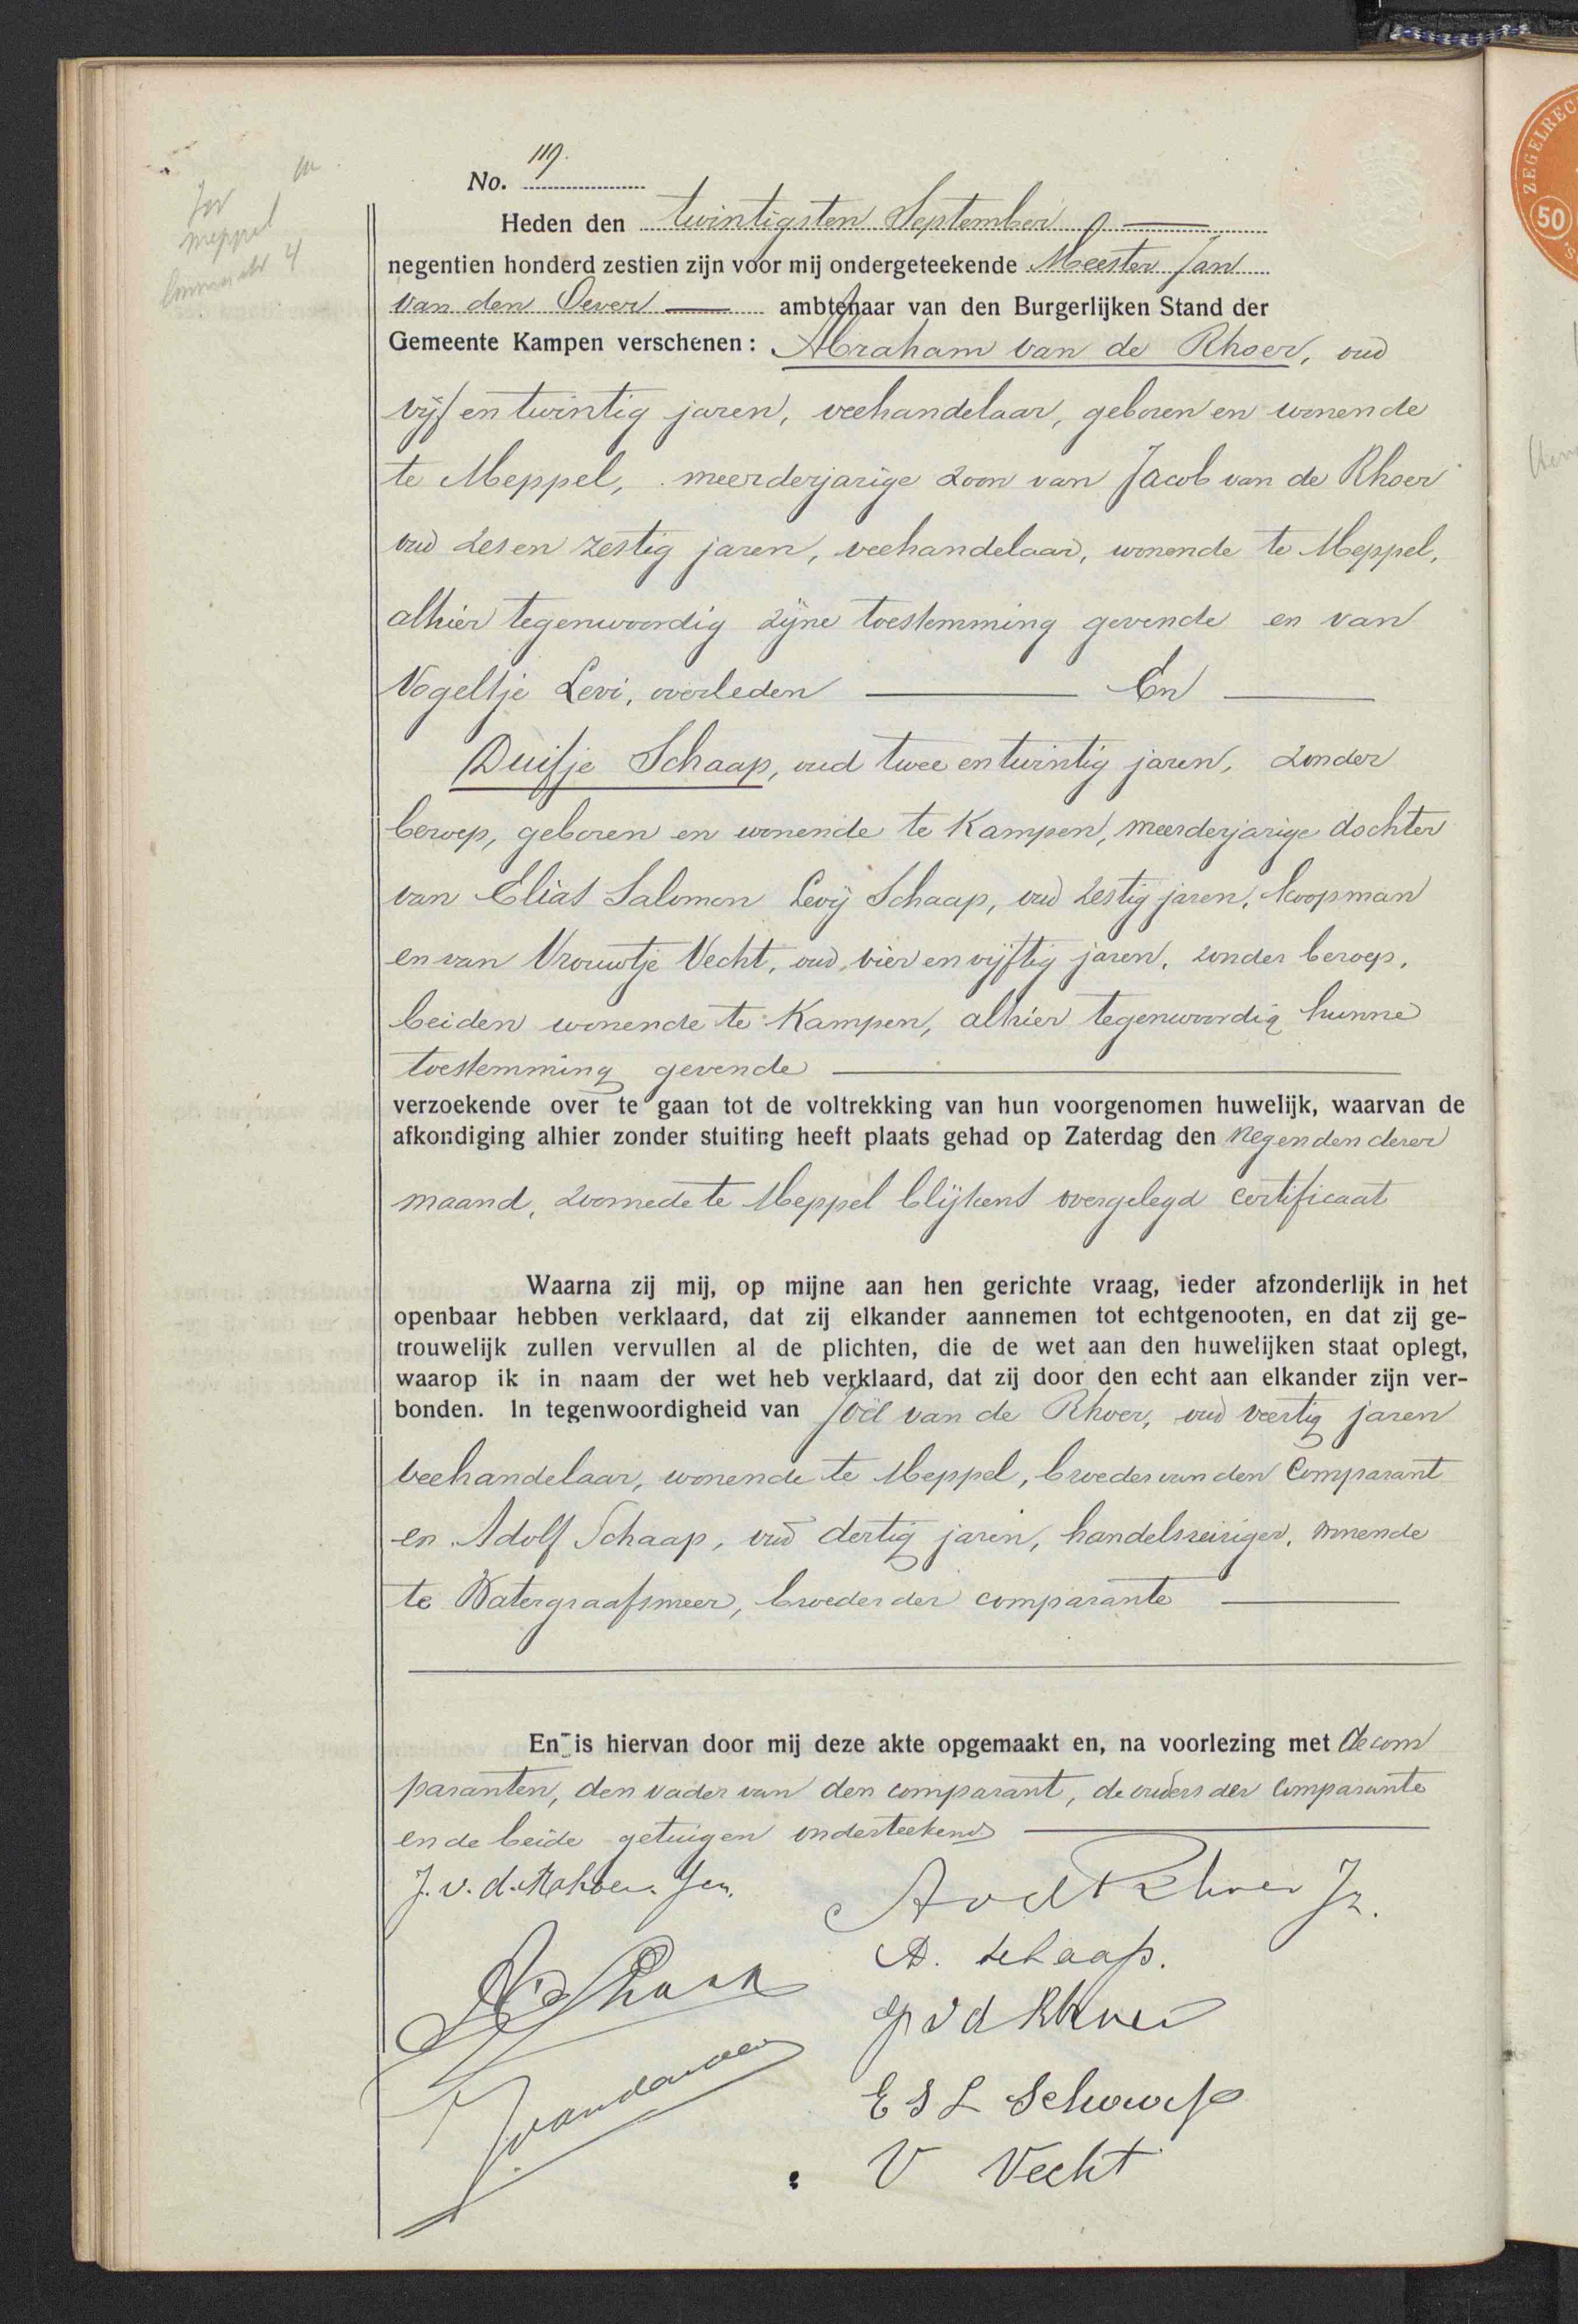 119.
No.
Meppel
4
Heden den twintigsten September
negentien honderd zestien zijn voor mij ondergeteekende Meester Jan
van den Oever ambtenaar van den Burgerlijken Stand der
Gemeente Kampen verschenen: Abraham van de Rhoer, oud
vijf en twintig jaren, veehandelaar, geboren en wonende
te Meppel, meerderjarige zoon van Jacob van de Rhoer
oud zes en zestig jaren, veehandelaar, wonende te Meppel,
alhier tegenwoordig zijne toestemming gevende en van
Vogeltje Levi, overleden En
Duifje Schaap, oud twee en twintig jaren, zonder
beroep, geboren en wonende te Kampen, meerderjarige dochter
van Elias Salomon Levij Schaap, oud zestig jaren, koopman
en van Vrouwtje Vecht, oud vier en vijftig jaren, zonder beroep,
beiden wonende te Kampen, alhier tegenwoordig hunne
toestemming gevende
verzoekende over te gaan tot de voltrekking van hun voorgenomen huwelijk, waarvan de
afkondiging alhier zonder stuiting heeft plaats gehad op Zaterdag den negenden dezer
maand, zoomede te Meppel blijkens overgelegd certificaat
Waarna zij mij, op mijne aan hen gerichte vraag, ieder afzonderlijk in het
openbaar hebben verklaard, dat zij elkander aannemen tot echtgenooten, en dat zij ge-
trouwelijk zullen vervullen al de plichten, die de wet aan den huwelijken staat oplegt,
waarop ik in naam der wet heb verklaard, dat zij door den echt aan elkander zijn ver-
bonden. In tegenwoordigheid van Joël van de Rhoer, oud veertig jaren
veehandelaar, wonende te Meppel, broeder van den Comparant
en Adolf Schaap, oud dertig jaren, handelsreiziger, wonende
te Watergraafsmeer, broeder der comparante
En is hiervan door mij deze akte opgemaakt en, na voorlezing met de com
paranten, den vader van den comparant, de ouders der comparante
en de beide getuigen onderteekend
J. v. d. Rahoer. Sen. AvdRhoer Jr.
A. Schaap.
J v d Rhoer
E S L Schaap
Jvandenoever
V Vecht
ZEGELREC
50